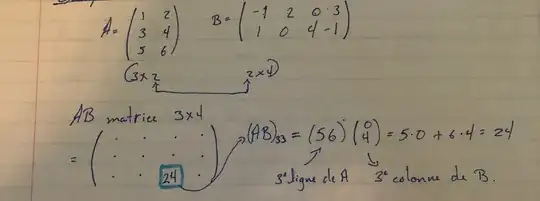 A = ( 1 2 / 3 4 / 5 6 ) B = ( -1 2 0 3 / 1 0 4 -1 )
(3×2 2×4)
AB matrice 3×4
= ( . . . . / . . . . / . . 24 . ) (AB)33 = (5 6) ( 0 / 4 ) = 5·0 + 6·4 = 24
3e ligne de A 3e colonne de B.